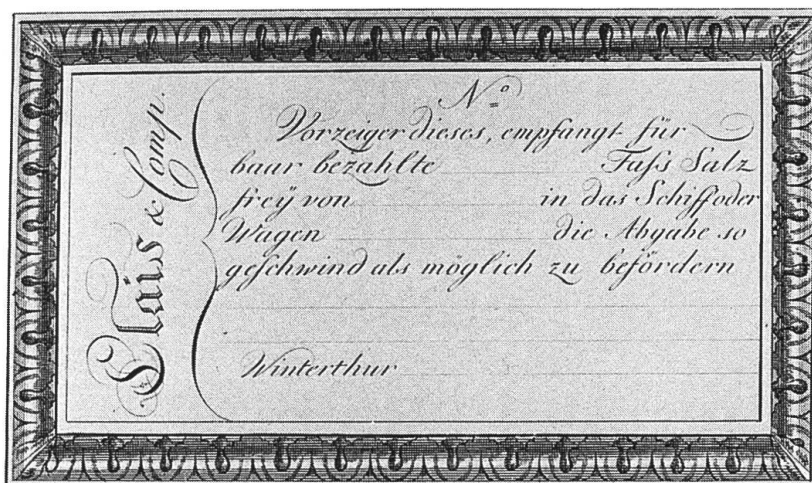 Clais & Comp.
N.º
Vorzeiger dieses, empfangt für
baar bezahlte Fass Salz
freÿ von in das Schiff oder
Wagen die Abgabe so
geschwind als möglich zu befördern
Winterthur